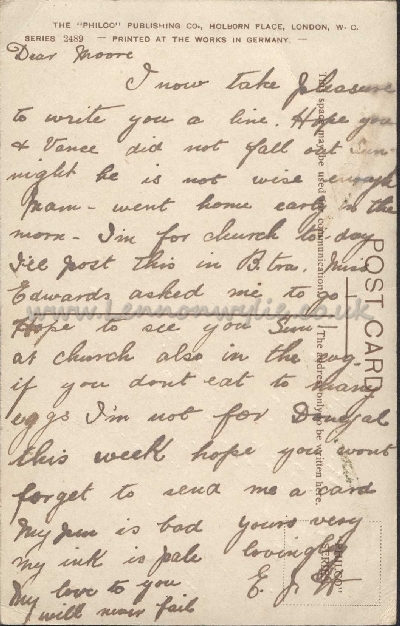 THE "PHILCO" PUBLISHING CO., HOLBORN PLACE, LONDON, W.C.
SERIES 2489 — PRINTED AT THE WORKS IN GERMANY. —
Dear Moore
I now take pleasure
to write you a line. Hope you
& Vance did not fall out Sun-
night he is not wise enough
Mam - went home early in the
morn - I'm for church to-day
I'll post this in B.tra. Miss
Edwards asked me to go
Hope to see you Sun
at church also in the evg.
if you dont eat to many
eggs I'm not for Donegal
this week hope you wont
forget to send me a card
My pen is bad yours very
my ink is pale lovingly
My love to you E. J. H
will never fail
POST CARD
This space may be used for communication.
The address only to be written here.
"PHILCO"
SERIES
www.Lennonwylie.co.uk